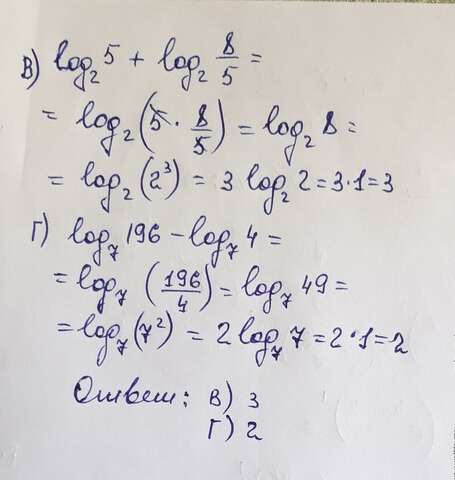 В) log₂5 + log₂ 8/5 =
= log₂(5 · 8/5) = log₂ 8 =
= log₂(2³) = 3 log₂ 2 = 3·1 = 3
Г) log₇ 196 – log₇ 4 =
= log₇ (196/4) = log₇ 49 =
= log₇(7²) = 2 log₇ 7 = 2·1 = 2
Ответ: В) 3
Г) 2